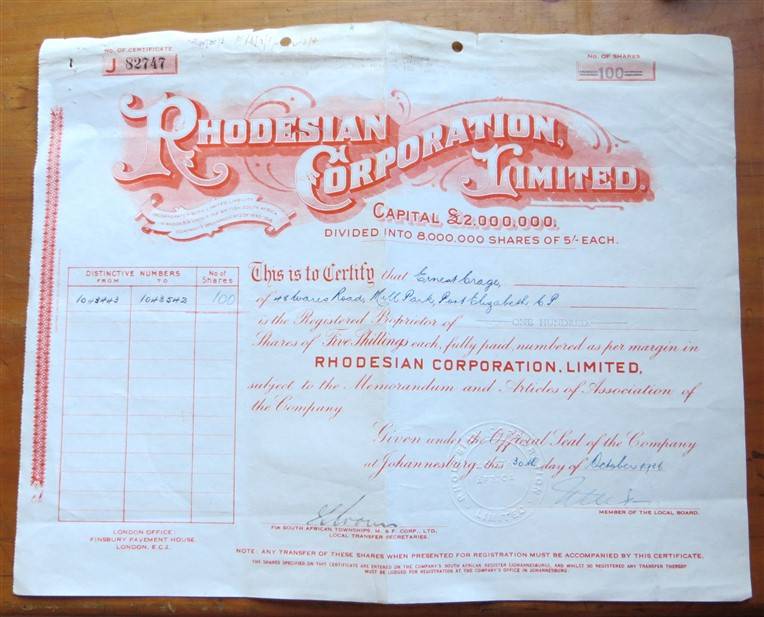 NO. OF CERTIFICATE
J 82747
NO. OF SHARES
100
RHODESIAN
CORPORATION,
LIMITED.
CAPITAL £2,000,000.
DIVIDED INTO 8,000,000 SHARES OF 5/- EACH.
DISTINCTIVE NUMBERS
FROM TO
No of Shares
1043443 1043542 100
This is to Certify that Ernest Crage,
of 48 Wares Road, Mill Park, Port Elizabeth, C.P.
is the Registered Proprietor of ONE HUNDRED
Shares of Five Shillings each, fully paid, numbered as per margin in
RHODESIAN CORPORATION, LIMITED,
subject to the Memorandum and Articles of Association of
the Company
Given under the Official Seal of the Company
at Johannesburg, this 30th day of October
MEMBER OF THE LOCAL BOARD.
FOR SOUTH AFRICAN TOWNSHIPS, M. & F. CORP., LTD.
LOCAL TRANSFER SECRETARIES.
LONDON OFFICE
FINSBURY PAVEMENT HOUSE,
LONDON, E.C.2.
NOTE: ANY TRANSFER OF THESE SHARES WHEN PRESENTED FOR REGISTRATION MUST BE ACCOMPANIED BY THIS CERTIFICATE.
THE SHARES SPECIFIED ON THIS CERTIFICATE ARE ENTERED ON THE COMPANY'S SOUTH AFRICAN REGISTER (JOHANNESBURG), AND WHILST SO REGISTERED ANY TRANSFER THEREOF
MUST BE LODGED FOR REGISTRATION AT THE COMPANY'S OFFICE IN JOHANNESBURG.